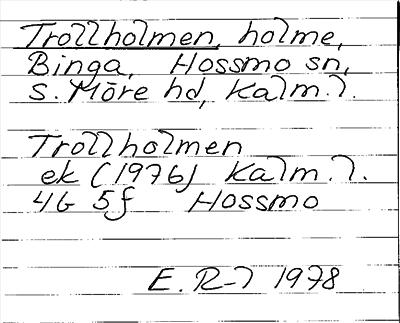 Trollholmen, holme,
Binga, Hossmo sn,
S. Möre hd, Kalm. l.
Trollholmen
ek (1976) Kalm. l.
4G 5f Hossmo
E. R-l 1978